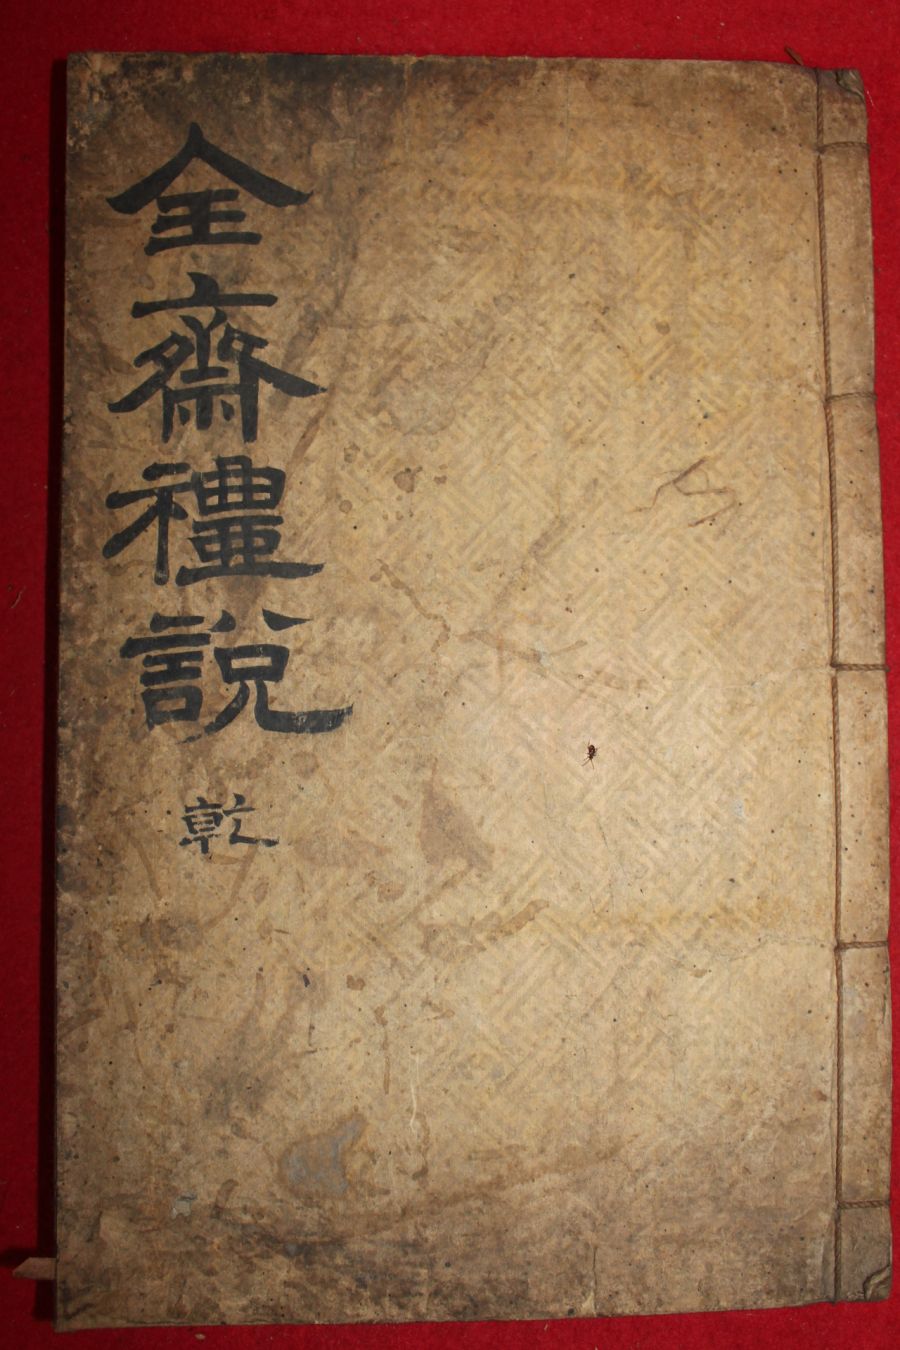 全齋禮說
乾